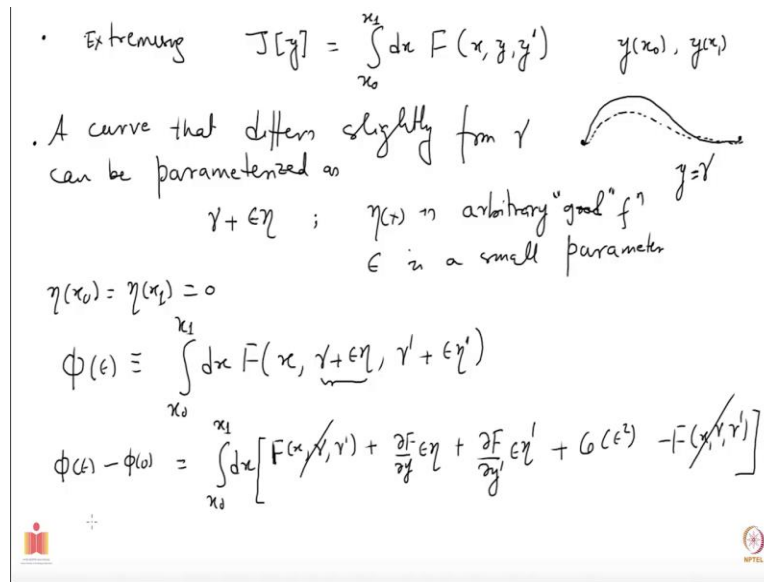 • Extremizing J[y] = ∫_{x₀}^{x₁} dx F(x, y, y') y(x₀), y(x₁)
• A curve that differs slightly from γ
can be parameterized as y=γ
γ + εη ; η(x) is arbitrary "good" fⁿ
ε is a small parameter
η(x₀) = η(x₁) = 0
ϕ(ε) ≡ ∫_{x₀}^{x₁} dx F(x, γ+εη, γ' + εη')
ϕ(ε) – ϕ(0) = ∫_{x₀}^{x₁} dx [F(x, γ, γ') + ∂F/∂y εη + ∂F/∂y' εη' + O(ε²) – F(x, γ, γ')]
NPTEL